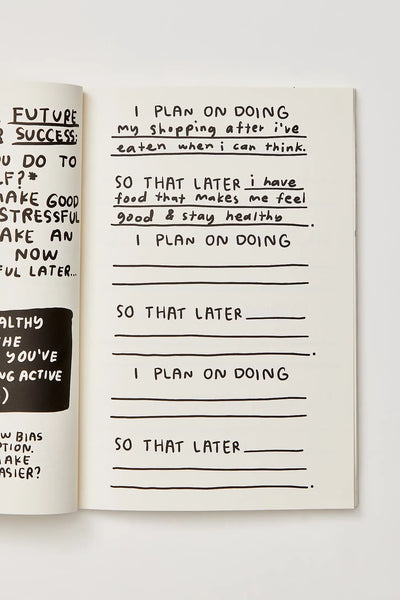 FUTURE
SUCCESS:
DO TO
GOOD
STRESSFUL
AN
NOW
LATER...
YOU'VE
ACTIVE
)
BIAS
I PLAN ON DOING
my shopping after i've
eaten when i can think.
SO THAT LATER i have
food that makes me feel
good & stay healthy.
I PLAN ON DOING
SO THAT LATER
.
I PLAN ON DOING
SO THAT LATER
.